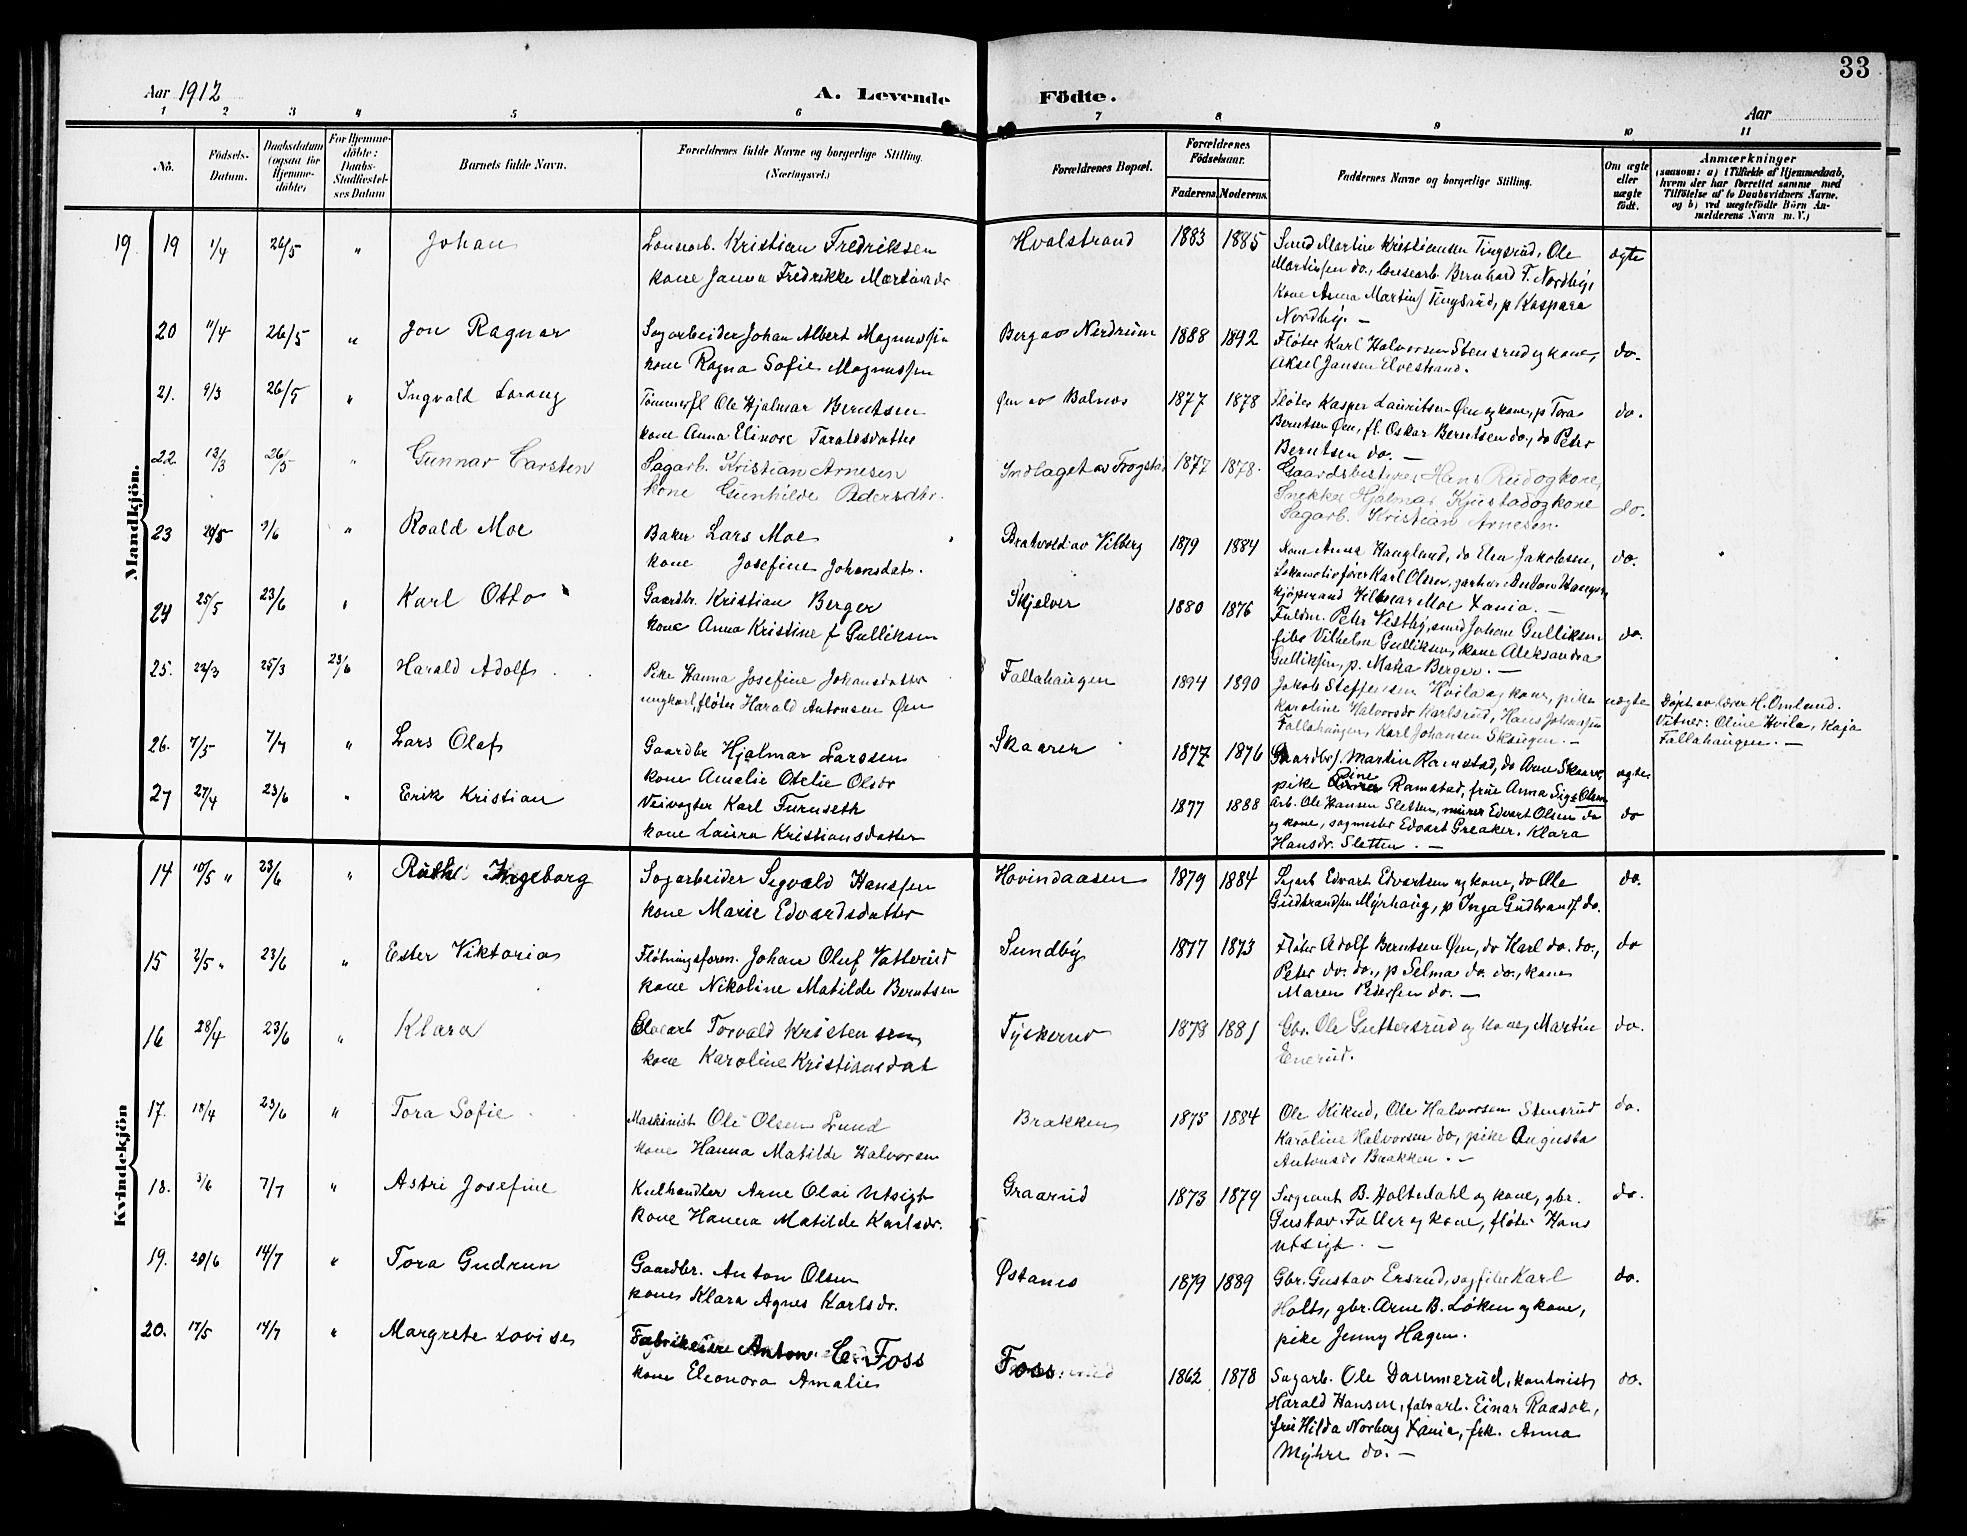 33
Aar 1912
A. Levende Födte.
Aar
1 2 3 4 5 6 7 8 9 10 11
No.
Födsels-Datum.
Daabsdatum (ogsaa for Hjemme-döbte)
For Hjemme-döbte: Daabs-Stadfæstel-ses Datum
Barnets fulde Navn.
Forældrenes fulde Navne og borgerlige Stilling. (Næringsvei.)
Forældrenes Bopæl.
Forældrenes Födselsaar.
Faderens Moderens
Faddernes Navne og borgerlige Stilling.
Om ægte eller uægte födt.
Anmærkninger
(saasom: a) i Tilfælde af Hjemmedaab,
hvem der har forrettet samme med
Tilföielse af to Daabsvidners Navne.
og b) ved uægtefödte Börn An-
melderens Navn m. V.)
Mandkjön.
19 19 1/4 26/5 " Johan
Kristian Fredriksen
kone Janna Fredrikke Martinsdr
Hvalstrand 1883 1885
Smed Martin Kristiansen Tingsrud, Ole
Martinsen do., Bernhard F. Nordby,
kone Anna Martins Tingsrud, p Kaspara
Nordby. —
ægte
20 11/4 26/5 " Jon Ragnar
Sagarbeider Johan Albert Magnussen
kone Ragna Sofie Magnussen
Berg av Nerdrum 1888 1892
Fløter Karl Halvorsen Stensrud og kone,
Aksel Jansen Elvestrand.
do.
21. 9/3 26/5 " Ingvald Lorang
Tømmerfl Ole Hjalmar Berntsen
kone Anna Elinore Taraldsdatter
Øen av Balnes 1877 1878
Fløter Kasper Lauritsen Øen og kone, p Tora
Berntsen Øen, fl. Oskar Berntsen do, do Peter
Berntsen do. —
do.
22. 13/3 26/5 " Gunnar Carsten
Sagarb. Kristian Arnesen
kone Gunhilde Pedersdtr.
Indlaget av Frogstad 1877 1878.
Gaardsbestyrer Hans Rud og kone,
Snekker Hjalmar Kjustad og kone
Sagarb. Kristian Arnesen.
do.
23 29/5 9/6 " Roald Moe
Baker Lars Moe
kone Josefine Johansdat.
Brakvold av Vilberg 1879 1884
Kone Anna Haugland, do Elen Jakobsen,
Lokomotivfører Karl Olsen, Anton
Hilmar Moe Xania. —
do.
24 25/5 23/6 " Karl Otto
Gaardbr. Kristian Berger
kone Anna Kristine f Gulliksen
Skjelver 1880 1876
Fuldm. Peter Vestby, smed Johan Gulliksen
Vilhelm Gulliksen, kone Aleksandra
Gulliksen, p. Maka Berger. —
do.
25. 22/3 25/3 23/6 Harald Adolf
Pike Hanna Josefine Johansdatter
ungkarl, fløter Harald Antonsen Øen
Fallahaugen 1894 1890
Jakob Steffensen Hvila og kone, piken
Karoline Halvorsdr Karlsrud, Hans Johansen
Fallahaugen, Karl Johansen Skaugen. —
uægte
Døpt av lærer H. Omland.
Vitner: Oline Hvila, Kaja
Fallahaugen. —
26. 7/5 7/7 " Lars Olaf
Gaardbr Hjalmar Larssen
kone Amalie Otelie Olsdr
Skaarer 1877 1876
Gaardbr. Martin Ramstad, do Arne Skaarer,
pike Line Ramstad, frue Anna Sigs Olsen
ægte
27 27/4 23/6 " Erik Kristian
Veivogter Karl Furuseth
kone Laura Kristiansdatter
1877 1888
Arb. Ole Hansen Sletten, murer Edvart Olsen do
og kone, sagmester Edvart Greaker, Klara
Hansdr. Sletten. —
do
Kvindekjön
14 10/5 " 23/6 " Ruth Ingeborg
Sagarbeider Sigvald Hanssen
kone Marie Edvardsdatter
Hovindaasen 1879 1884
Sagarb Edvart Edvartsen og kone, do Ole
Gudbrandsen Myrhaug, p Inga Gudbrands do.
do.
15 2/5 " 23/6 " Ester Viktoria
Fløtningsform. Johan Oluf Vatterud
kone Nikoline Matilde Berntsen
Sundby 1877 1873
Fløter Adolf Berntsen Øen, do Karl do. do.,
Peter do. do., p Selma do do., kone
Maren Pedersen do. —
do
16 28/4 23/6 " Klara
Torvald Kristensen
kone Karoline Kristiansdat
Tyskerud 1878 1881
Gbr. Ole Guttersrud og kone, Martin
Enerud.
do.
17. 18/4 23/6 " Tora Sofie
Maskinist Ole Olsen Lund
kone Hanna Matilde Halvorsen
Brakken 1875 1884
Ole Kikud, Ole Halvorsen Stensrud
Karoline Halvorsen do, pike Augusta
Antonsdr Brakken. —
do.
18. 3/6 7/7 " Astri Josefine
Kulhandler Arne Olai Utsigt
kone Hanna Matilde Karlsdr.
Graarud 1873 1879
Sergeant B. Holtedahl og kone, gbr.
Gustav Faller og kone, fløter Hans
Utsigt. —
do.
19. 28/6 14/7 " Tora Gudrun
Gaardbr. Anton Olsen
kone Klara Agnes Karlsdr.
Østanes 1879 1889
Gbr. Gustav Ersrud, Karl
Holt, gbr. Arne B. Løken og kone,
pike Jenny Hagen.
do.
20. 17/5 14/7 " Margrete Lovise
Fabrikeiere Anton C. Foss
kone Eleonora Amalie
Foss 1862 1878
Sagarb. Ole Dammerud, kontorist
Harald Hansen, fabr arb. Einar Raasok,
frue Hilda Norberg Xania, frk. Anna
Myhre do. —
do.